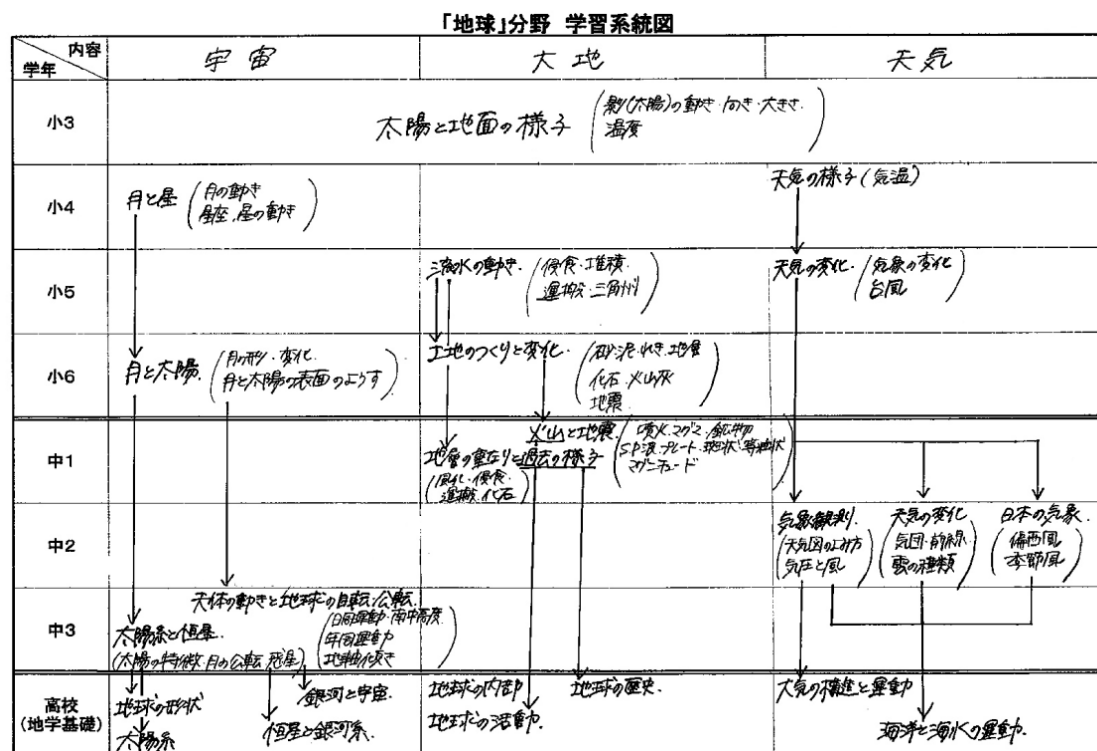 「地球」分野 学習系統図
内容
学年
宇宙
大地
天気
小3
太陽と地面の様子
影(太陽)の動き・向き・大きさ.
温度
小4
月と星
月の動き
星座、星の動き
天気の様子(気温)
小5
流水の動き.
侵食・堆積.
運搬・三角州
天気の変化.
気象の変化
台風
小6
月と太陽.
月の形・変化.
月と太陽の表面のようす
土地のつくりと変化.
砂・泥・れき・地層
化石・火山灰
地震
中1
火山と地震.
噴火・マグマ・鉱物
SP波・プレート・斑状・等粒状
マグニチュード
地層の重なりと過去の様子
風化・侵食
運搬・化石
中2
気象観測.
天気図のよみ方
気圧と風
天気の変化
気団・前線.
雲の種類
日本の気象.
偏西風
季節風
中3
天体の動きと地球の自転・公転.
日周運動・南中高度.
年周運動
地軸傾き
太陽系と恒星.
(太陽の特徴・月の公転 惑星)
高校
(地学基礎)
地球の形状
太陽系
銀河と宇宙.
恒星と銀河系.
地球の内部
地球の活動.
地球の歴史.
大気の構造と運動
海洋と海水の運動